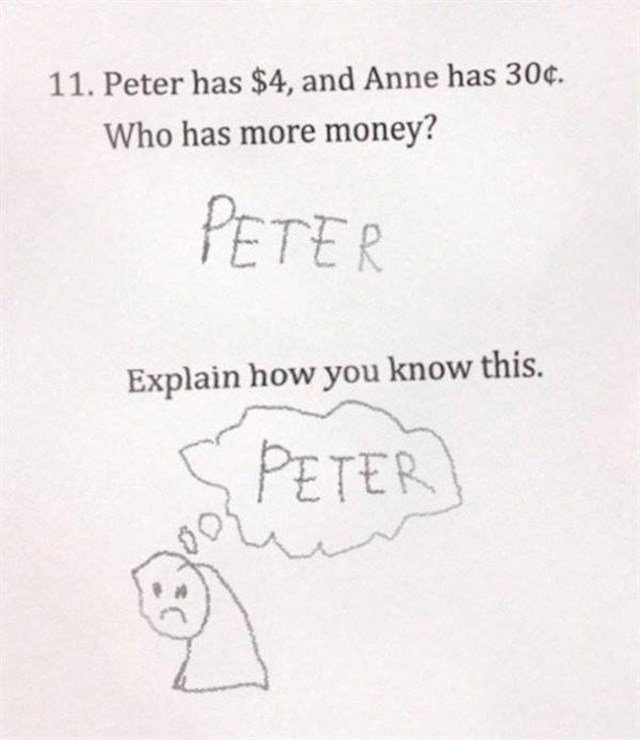 11. Peter has $4, and Anne has 30¢.
Who has more money?
PETER
Explain how you know this.
PETER